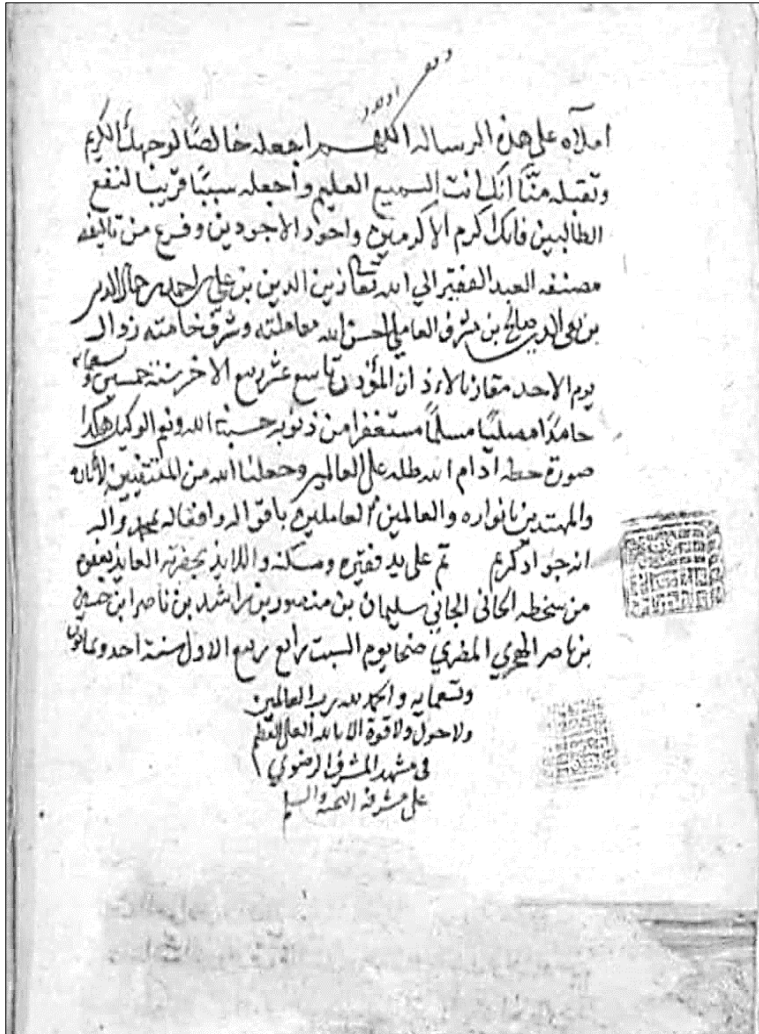 املاه على هذه الرسالة اللهم اجعله خالصًا لوجهك الكريم
وتقبله منّا انك انت السميع العليم واجعله سببًا قريبا لنفع
الطالبين فانك اكرم الاكرمين واجود الاجودين وفرغ من تاليفه
مصنفه العبد الفقير الى الله تعالى زين الدين بن علي بن احمد بن جمال الدين
بن تقي الدين صالح بن مشرف العاملي احسن الله معاملته وشرف خاتمته زوال
يوم الاحد مقارنا لاذان المؤذن تاسع عشر ربيع الاخر سنة خمسين و
حامدًا مصليًا مسلمًا مستغفرا من ذنوبه حسبنا الله ونعم الوكيل هكذا
صورة خطه ادام الله ظله على العالمين وجعلنا الله من المقتفين لاثاره
والمهتدين بانواره والعالمين العاملين باقواله وافعاله بمحمد واله
انه جواد كريم تم على يد فقيره ومسكنه واللايذ بحضرته العايذ بعفوه
من سخطه الجاني سليمان بن منصور بن راشد بن ناصر ابن
بن ناصر الهجري ضحا يوم السبت رابع ربيع الاول سنة احد وثمانون
وتسعمايه والحمد لله رب العالمين
ولا حول ولا قوة الا بالله العلي العظيم
في مشهد المشرف الرضوي
على مشرفه التحية والسلم